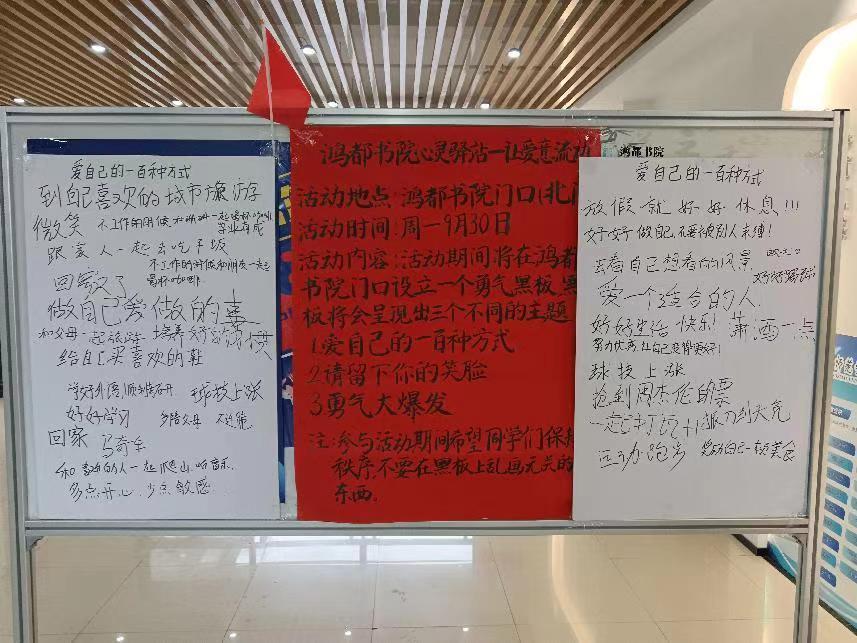 爱自己的一百种方式
到自己喜欢的城市旅游
微笑
不工作的时候和朋友一起喝杯咖啡
跟家人一起去吃午饭
不工作的时候和朋友一起
喝杯咖啡
回家了
做自己爱做的事
和父母一起旅游
培养好习惯
给自己买喜欢的鞋
学好外语,顺利开
球技上涨
好好学习
多陪父母
回家
和喜欢的人一起爬山,听音乐
多点开心,少点敏感
鸿都书院心灵驿站—让爱意流动
活动地点:鸿都书院门口(北门
活动时间:周一-9月30日
活动内容:活动期间将在鸿都
书院门口设立一个勇气黑板,黑
板将会呈现出三个不同的主题
1.爱自己的一百种方式
2.请留下你的笑脸
3.勇气大爆发
注:参与活动期间希望同学们保持
秩序,不要在黑板上乱画无关的
东西。
鸿都书院
爱自己的一百种方式
放假就好好休息!!!
好好做自己,不要被别人束缚!
去看自己想看的风景
爱一个适合的人
好好生活
快乐!
潇洒一点
努力优秀,让自己变得更好!
球技上涨
抢到周杰伦的票
运动跑步
奖励自己一顿美食